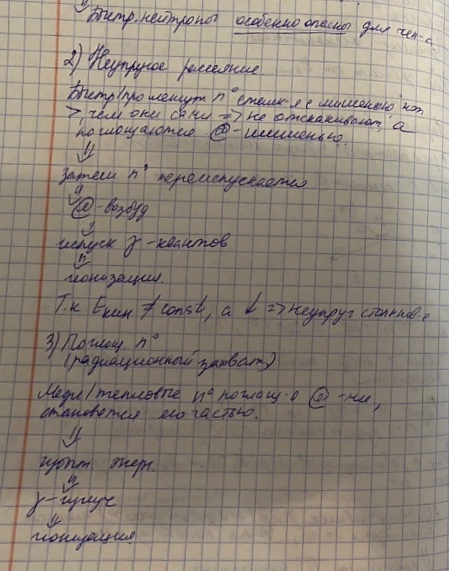 Быстр. нейтроны особенно опасны для чел-а.
2) Неупругое рассеяние
Быстр/промежут n° столк-я с мишенью, кот.
> чем они сами => не отскакивают, а
поглощаются @-мишенью.
⇓
затем n° переиспускается
⇓
@-возбуд
⇓
испуск γ-квантов
⇓
ионизация.
Т.к Eкин ≠ const, а ↓ => неупруг столкнов-е
3) Поглощ. n°
(радиационный захват)
Медл/тепловые n° поглощ-я @-ми,
становятся его частью.
⇓
избыт. энерг.
⇓
γ-излуч
⇓
ионизация.